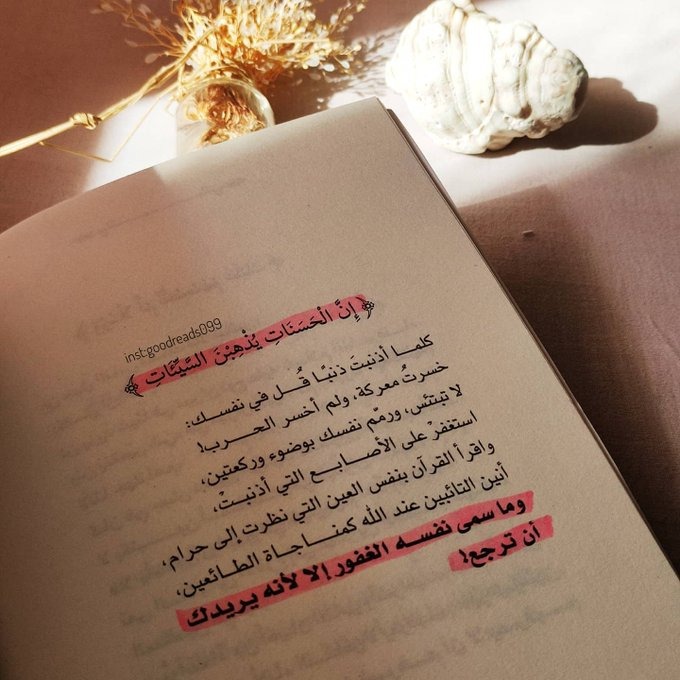 inst:goodreads099
﴿ إِنَّ الْحَسَنَاتِ يُذْهِبْنَ السَّيِّئَاتِ ﴾
كلما أذنبتَ ذنبًا قُل في نفسك:
خسرتُ معركة، ولم أخسر الحرب!
لا تبتئس، ورمّم نفسك بوضوء وركعتين،
استغفرْ على الأصابع التي أذنبتْ،
واقرأ القرآن بنفس العين التي نظرت إلى حرام،
أنين التائبين عند الله كمناجاة الطائعين،
وما سمى نفسه الغفور إلا لأنه يريدك
أن ترجع!